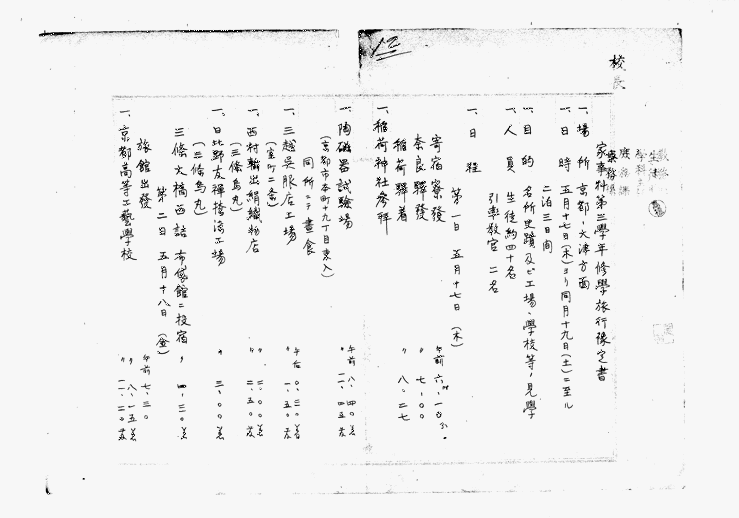 校長
家事科第三學年修學旅行豫定書
一、場所 京都、大津方面
一、日時 五月十七日(木)ヨリ同月十九日(土)ニ至ル
二泊三日間
一、目的 名所史蹟及ビ工場、學校等ノ見學
一、人員 生徒約四十名
引率教官 二名
一、日程
第一日 五月十七日(木)
寄宿寮發 午前六、一〇
奈良驛發 〃 七、〇〇
稲荷驛着 〃 八、二七
一、稲荷神社參拜
一、陶磁器試驗場 午前八、四〇着
〃 一一、四五發
(京都市本町十九丁目東入)
同所ニテ晝食
一、三越呉服店工場 午后〇、三〇着
〃 一、五〇發
(室町二条)
一、西村輸出絹織物店 〃 二、〇〇着
〃 二、五〇發
(三條烏丸)
一、日比野友禪 工場 〃 三、〇〇着
(三條烏丸)
三條大橋西詰 布袋館ニ投宿 〃 四、三〇着
第二日 五月十八日(金)
旅館出發 午前七、三〇
一、京都高等工藝學校 〃 八、一五着
〃 一一、二〇發